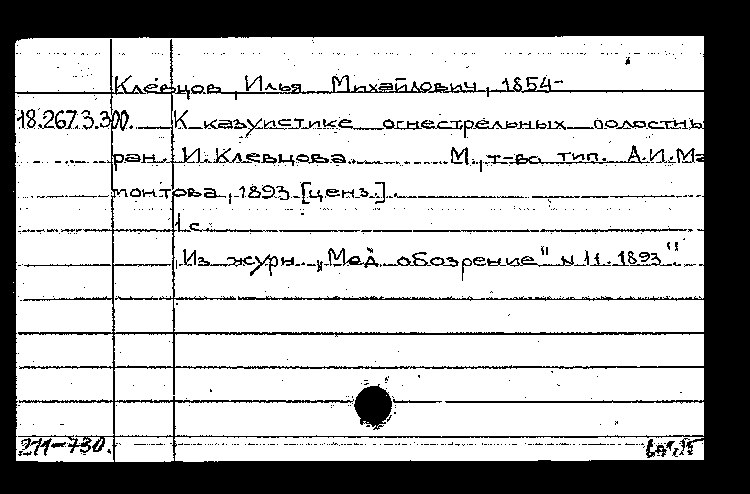 Клевцов, Илья Михайлович, 1854-
18.267.3.300. К казуистике огнестрельных полостны
ран И. Клевцова. М., т-во тип. А.И.Ма
монтова, 1893 [ценз.].
1 с.
Из журн. „Мед обозрение" N 11. 1893".
271-730.